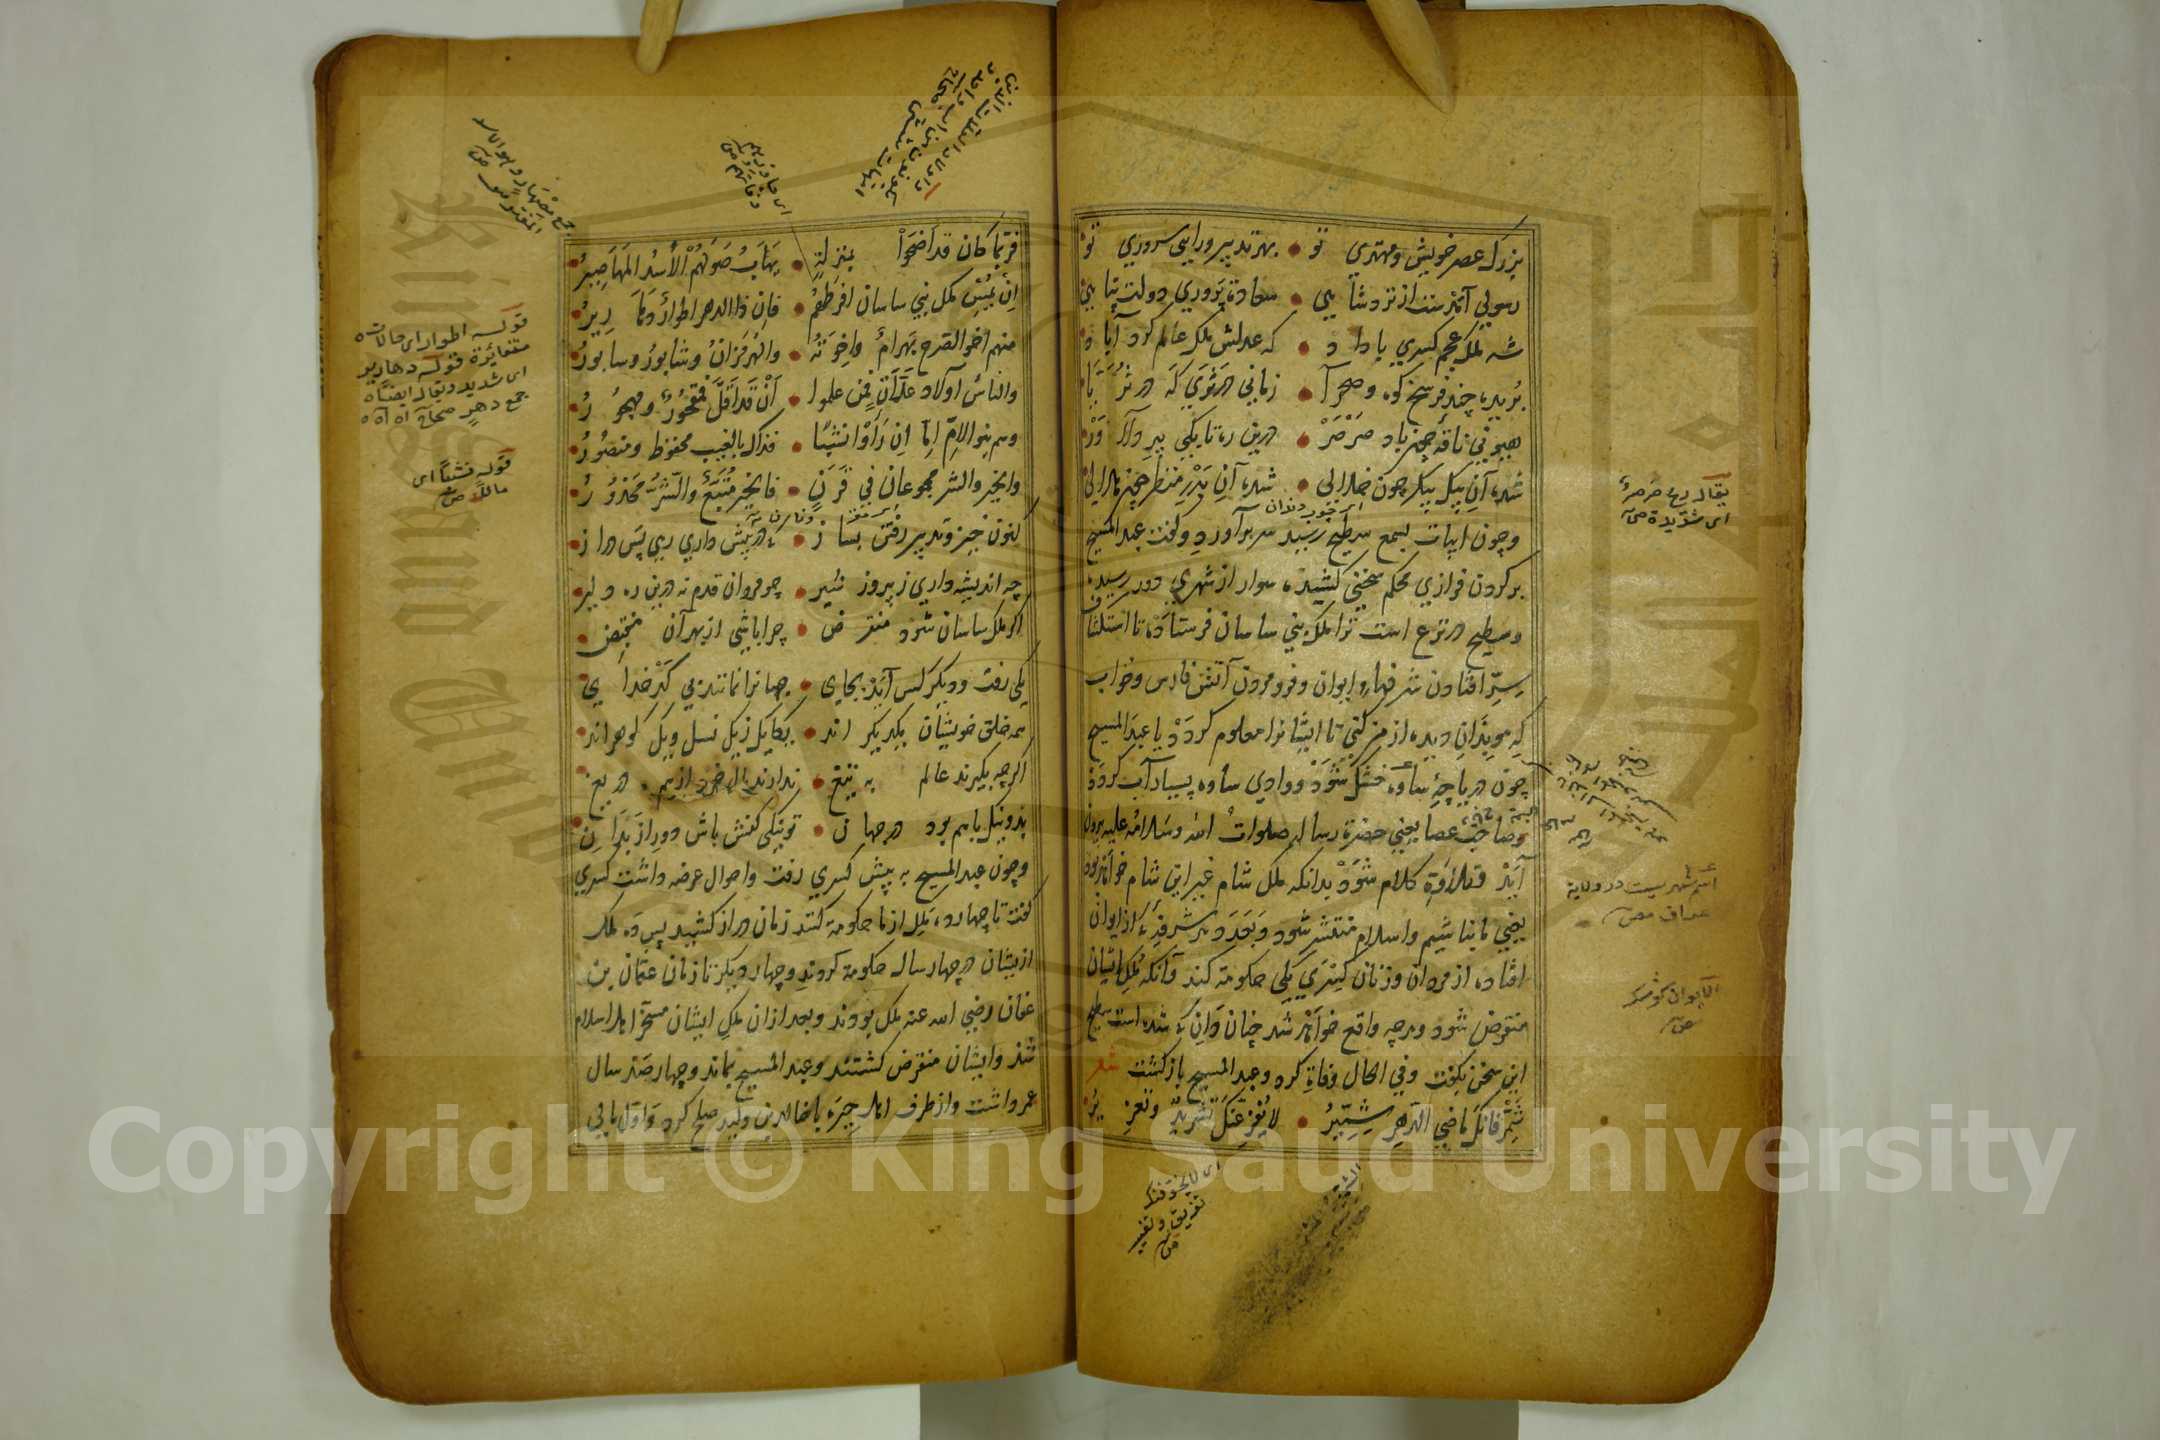 بزرک عصر خویش ومهتری تو • بهر تدبیر ورایی سروری تو
رسولی آمدست از نزد شاهی • سعادة پروری دولت پناهی
شه ملک عجم کسری با داد • که عدلش ملک عالم کرد آباد
بریده چند فرسخ کوه وصحرآ • زمانی در ثری که در ثریا
هیونی ناقه چون باد صرصر • درین ره تا یکی پیر دلاور
شده آن پیل پیکر چون خلالی • شده آن بدر منظر چون هلالی
وچون ابیات بسمع سطیح رسید سر برآورد وکفت عبد المسیح
بر کردن فرازی محکم سختی کشیده سوار از شهری دور رسیده
وسطیح در نزع است ترا ملک بنی ساسان فرستاده تا استکشاف
سرّ افتادن شرفهاء ایوان وفرو مردن آتش فارس وخواب
که موبذان دیده از من کنی تا ایشانرا معلوم کردد یا عبد المسیح
چون دریاچهٔ ساوه خشک شود ووادی ساوه پسیاد آب کردد
وصاحب عصا یعنی حضرة رسالة صلوات الله وسلامه علیه برون
آید وتلاوة کلام شود بدانکه ملک شام غیر این شام خواهد بود
یعنی ما نباشیم واسلام منتشر شود وبعدد هر شرفه که از ایوان
افتاده از مردان وزنان کسری یکی حکومة کند وآنکه ملک ایشان
منقرض شود وهرچه واقع خواهد شد چنان دان که شده است سطیح
این سخن بکفت وفی الحال وفاة کرد وعبد المسیح بازکشت شعر
شمّر فانک ماضی الدهر شمّیر • لا یفزعنک تشرید وتغریر
یقال ریح صرصر
ای شدیدة ص
اسم شهریست در ولایة
عراق ص
الایوان کوشک
ای لا یخوفنک
تفریق وتغییر
فربما کان قد اضحوا بمنزلة • یهاب صولهم الاسد المهاصیر
ان یمس ملک بنی ساسان افرطهم • فان ذا الدهر اطوار دهاریر
منهم اخو الصرح بهرام واخوته • والهرمزان وشابور وسابور
والناس اولاد علات فمن علموا • أن قد اقل فمحقور ومهجور
وهم بنو الام اما ان رأوا نشبا • فذاک بالغیب محفوظ ومنصور
والخیر والشر مجموعان فی قرن • فالخیر متبع والشر محذور
کنون خیز وتدبیر رفتن بساز • که در پیش داری رهی پس دراز
چه اندیشه داری ز پیروز شیر • چو مردان قدم نه درین ره دلیر
اکر ملک ساسان شود منقرض • چرا باشی از بهر آن ممتعض
یکی رفت ودیکر کس آید بجای • جهانرا نماند بی کدخدای
همه خلق خویشان یکدیکر اند • یکایک ز یک نسل ویک کوهر اند
اکرچه بکیرند عالم به تیغ • ندارند مال خود از هم دریغ
بد ونیک باهم بود در جهان • تو نیکی کنش باش دور از بدان
وچون عبد المسیح به پیش کسری رفت واحوال عرضه داشت کسری
کفت تا چهارده ملک از ما حکومة کند زمان دراز کشید پس ده ملک
از یشان در چهار سال حکومة کردند وچهار دیکر تا زمان عثمان بن
عفان رضی الله عنه ملک بودند وبعد ازان ملک ایشان مسخر اهل اسلام
شد وایشان منقرض کشتند وعبد المسیح بماند وچهار صد سال
عمر داشت واز طرف اهل حیره با خالد بن ولید صلح کرد واول مالی
جمع مهصار وهو الاسد
قوله اطوار ای حالات
متغائرة قوله دهاریر
ای شدید ویقال ایضا
جمع دهر صحاح
قوله نشبا ای
مالا ص
Copyright © King Saud University
King Saud University